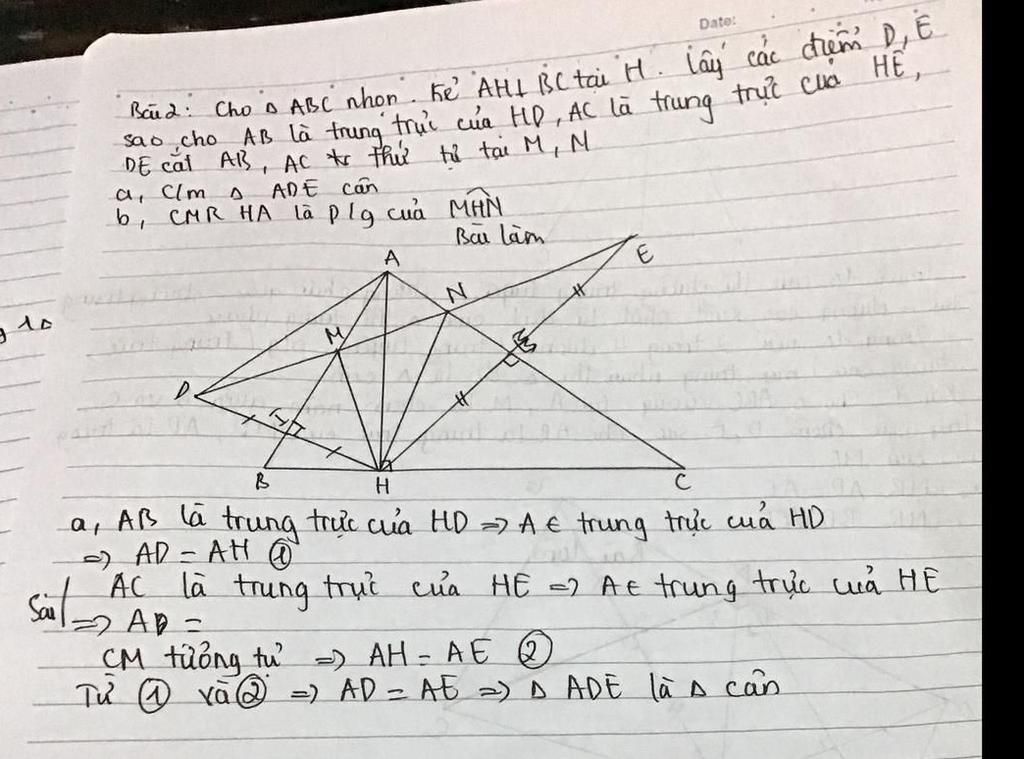 Date:
Bài 2: Cho Δ ABC nhọn. Kẻ AH⊥BC tại H. Lấy các điểm D, E
sao cho AB là trung trực của HD, AC là trung trực của HE,
DE cắt AB, AC thứ tự tại M, N
a, C/m Δ ADE cân
b, CMR HA là p/g của MHN
Bài làm
A
E
N
M
D
I
B
H
C
a, AB là trung trực của HD => A ∈ trung trực cuả HD
=> AD = AH ①
AC là trung trực của HE => A ∈ trung trực cuả HE
Sai => AD =
CM tương tự => AH = AE ②
Từ ① và ② => AD = AE => Δ ADE là Δ cân